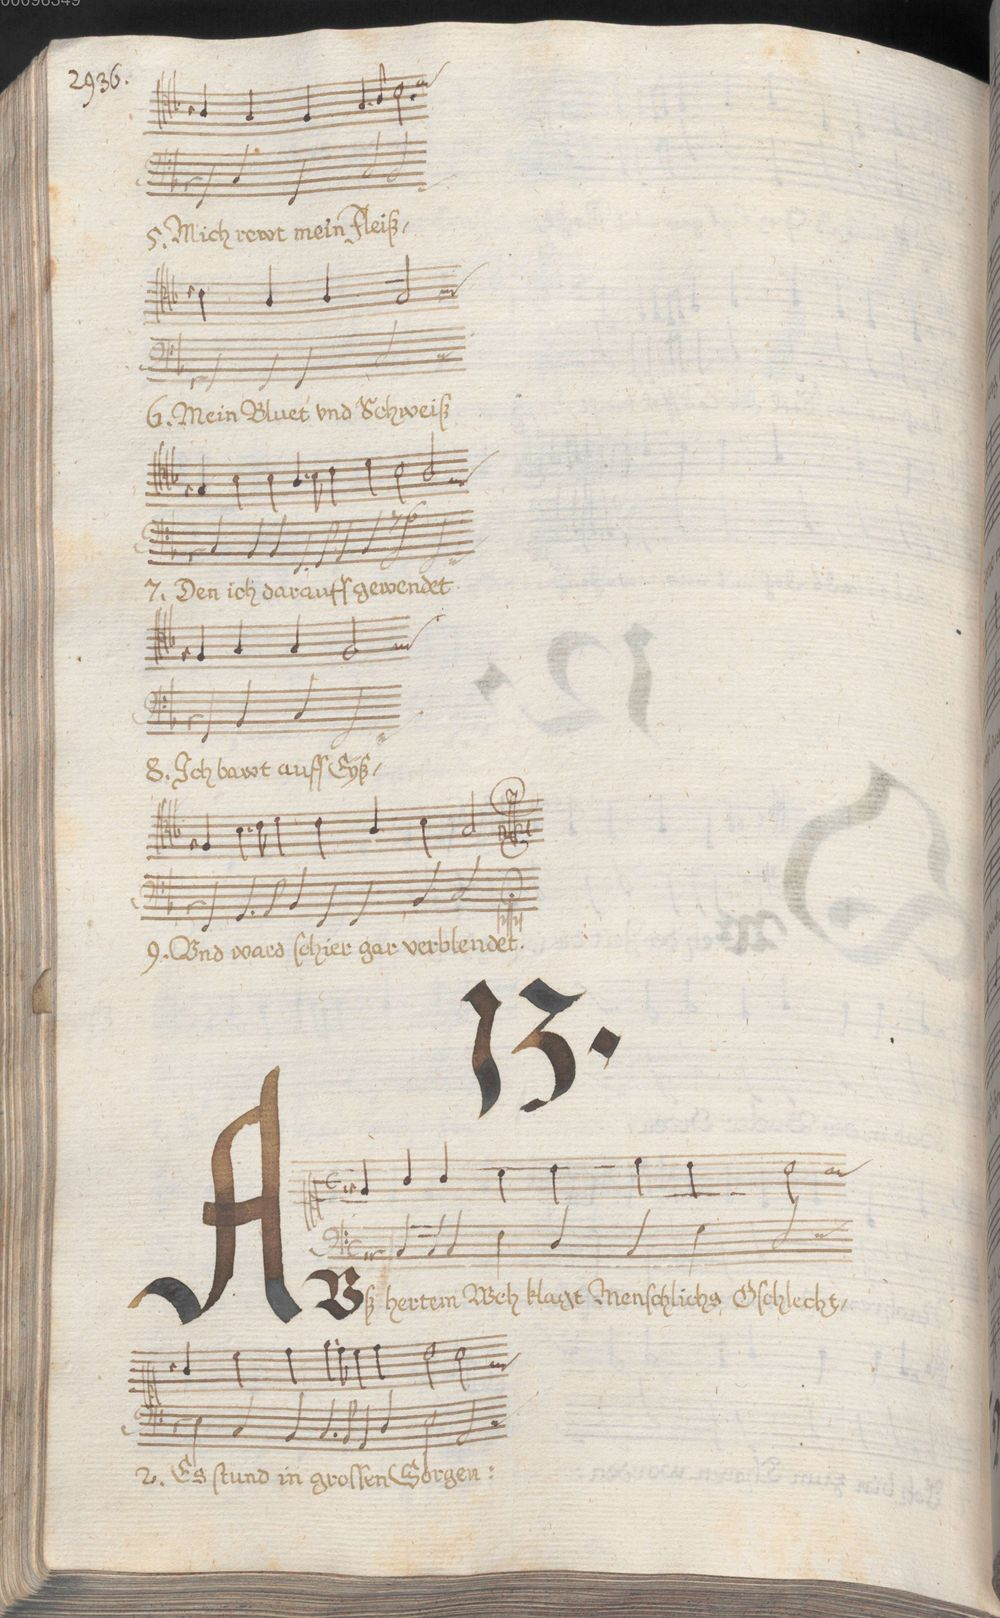 00098349
2936.
5. Mich rewt mein Fleiß/
6. Mein Bluet vnd Schweiß
7. Den ich darauff gewendet
8. Ich bawt auff Eyß/
76
9. Vnd ward schier gar verblendet.
13.
AVß hertem Weh klagt Menschlichs Gschlecht/
2. Es stund in grossen Sorgen: